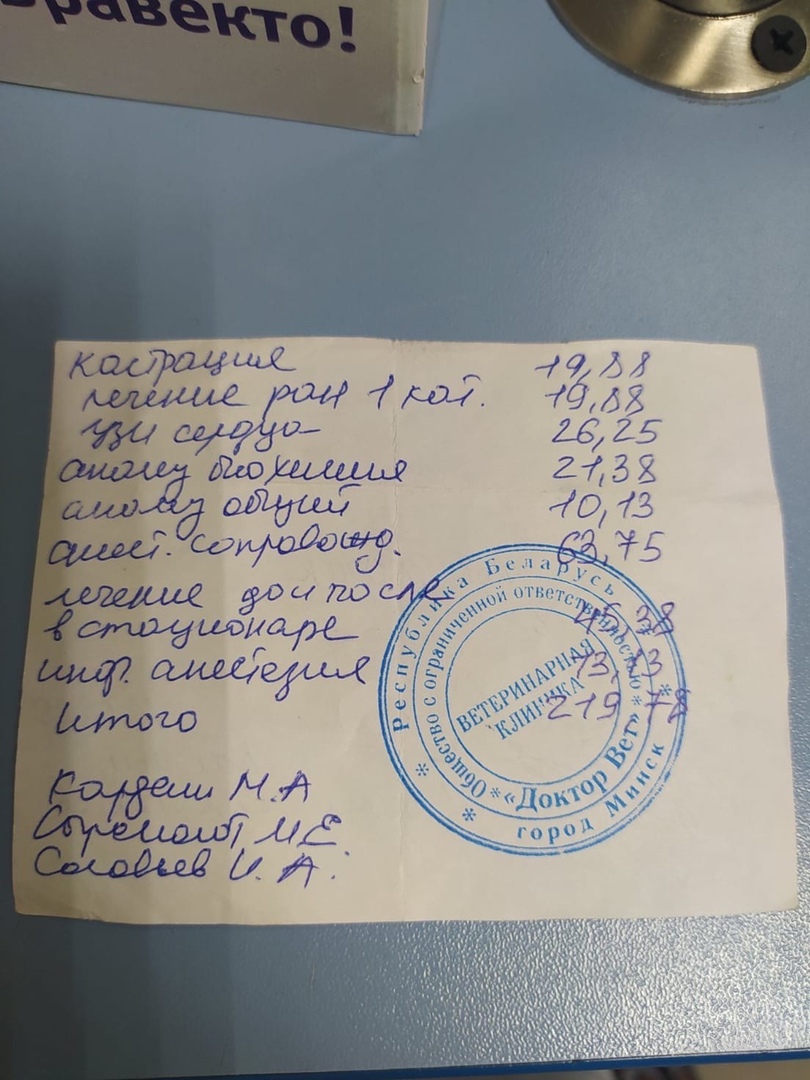 бравекто!
кастрация 19,88
лечение ран 1 кат. 19,88
узи сердца 26,25
анализ биохимия 21,38
анализ общий 10,13
анест. сопровожд. 63,75
лечение до и после
в стационаре 45,38
инф. анестезия 13,13
Итого 219 78
М.А
М Е
Соловьев И. А.
Республика Беларусь
город Минск
Общество с ограниченной ответственностью
«Доктор Вет»
ВЕТЕРИНАРНАЯ
КЛИНИКА